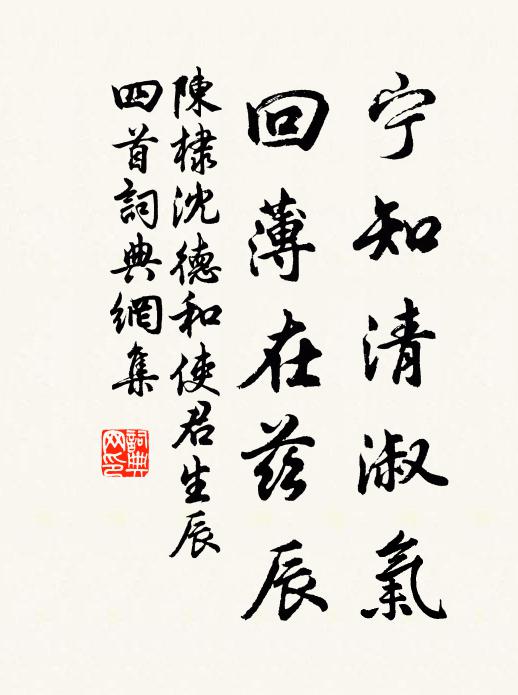 宁知清淑氣
回薄在茲辰
陳棣沈德和使君生辰
四首詞典網集
詞典
网印